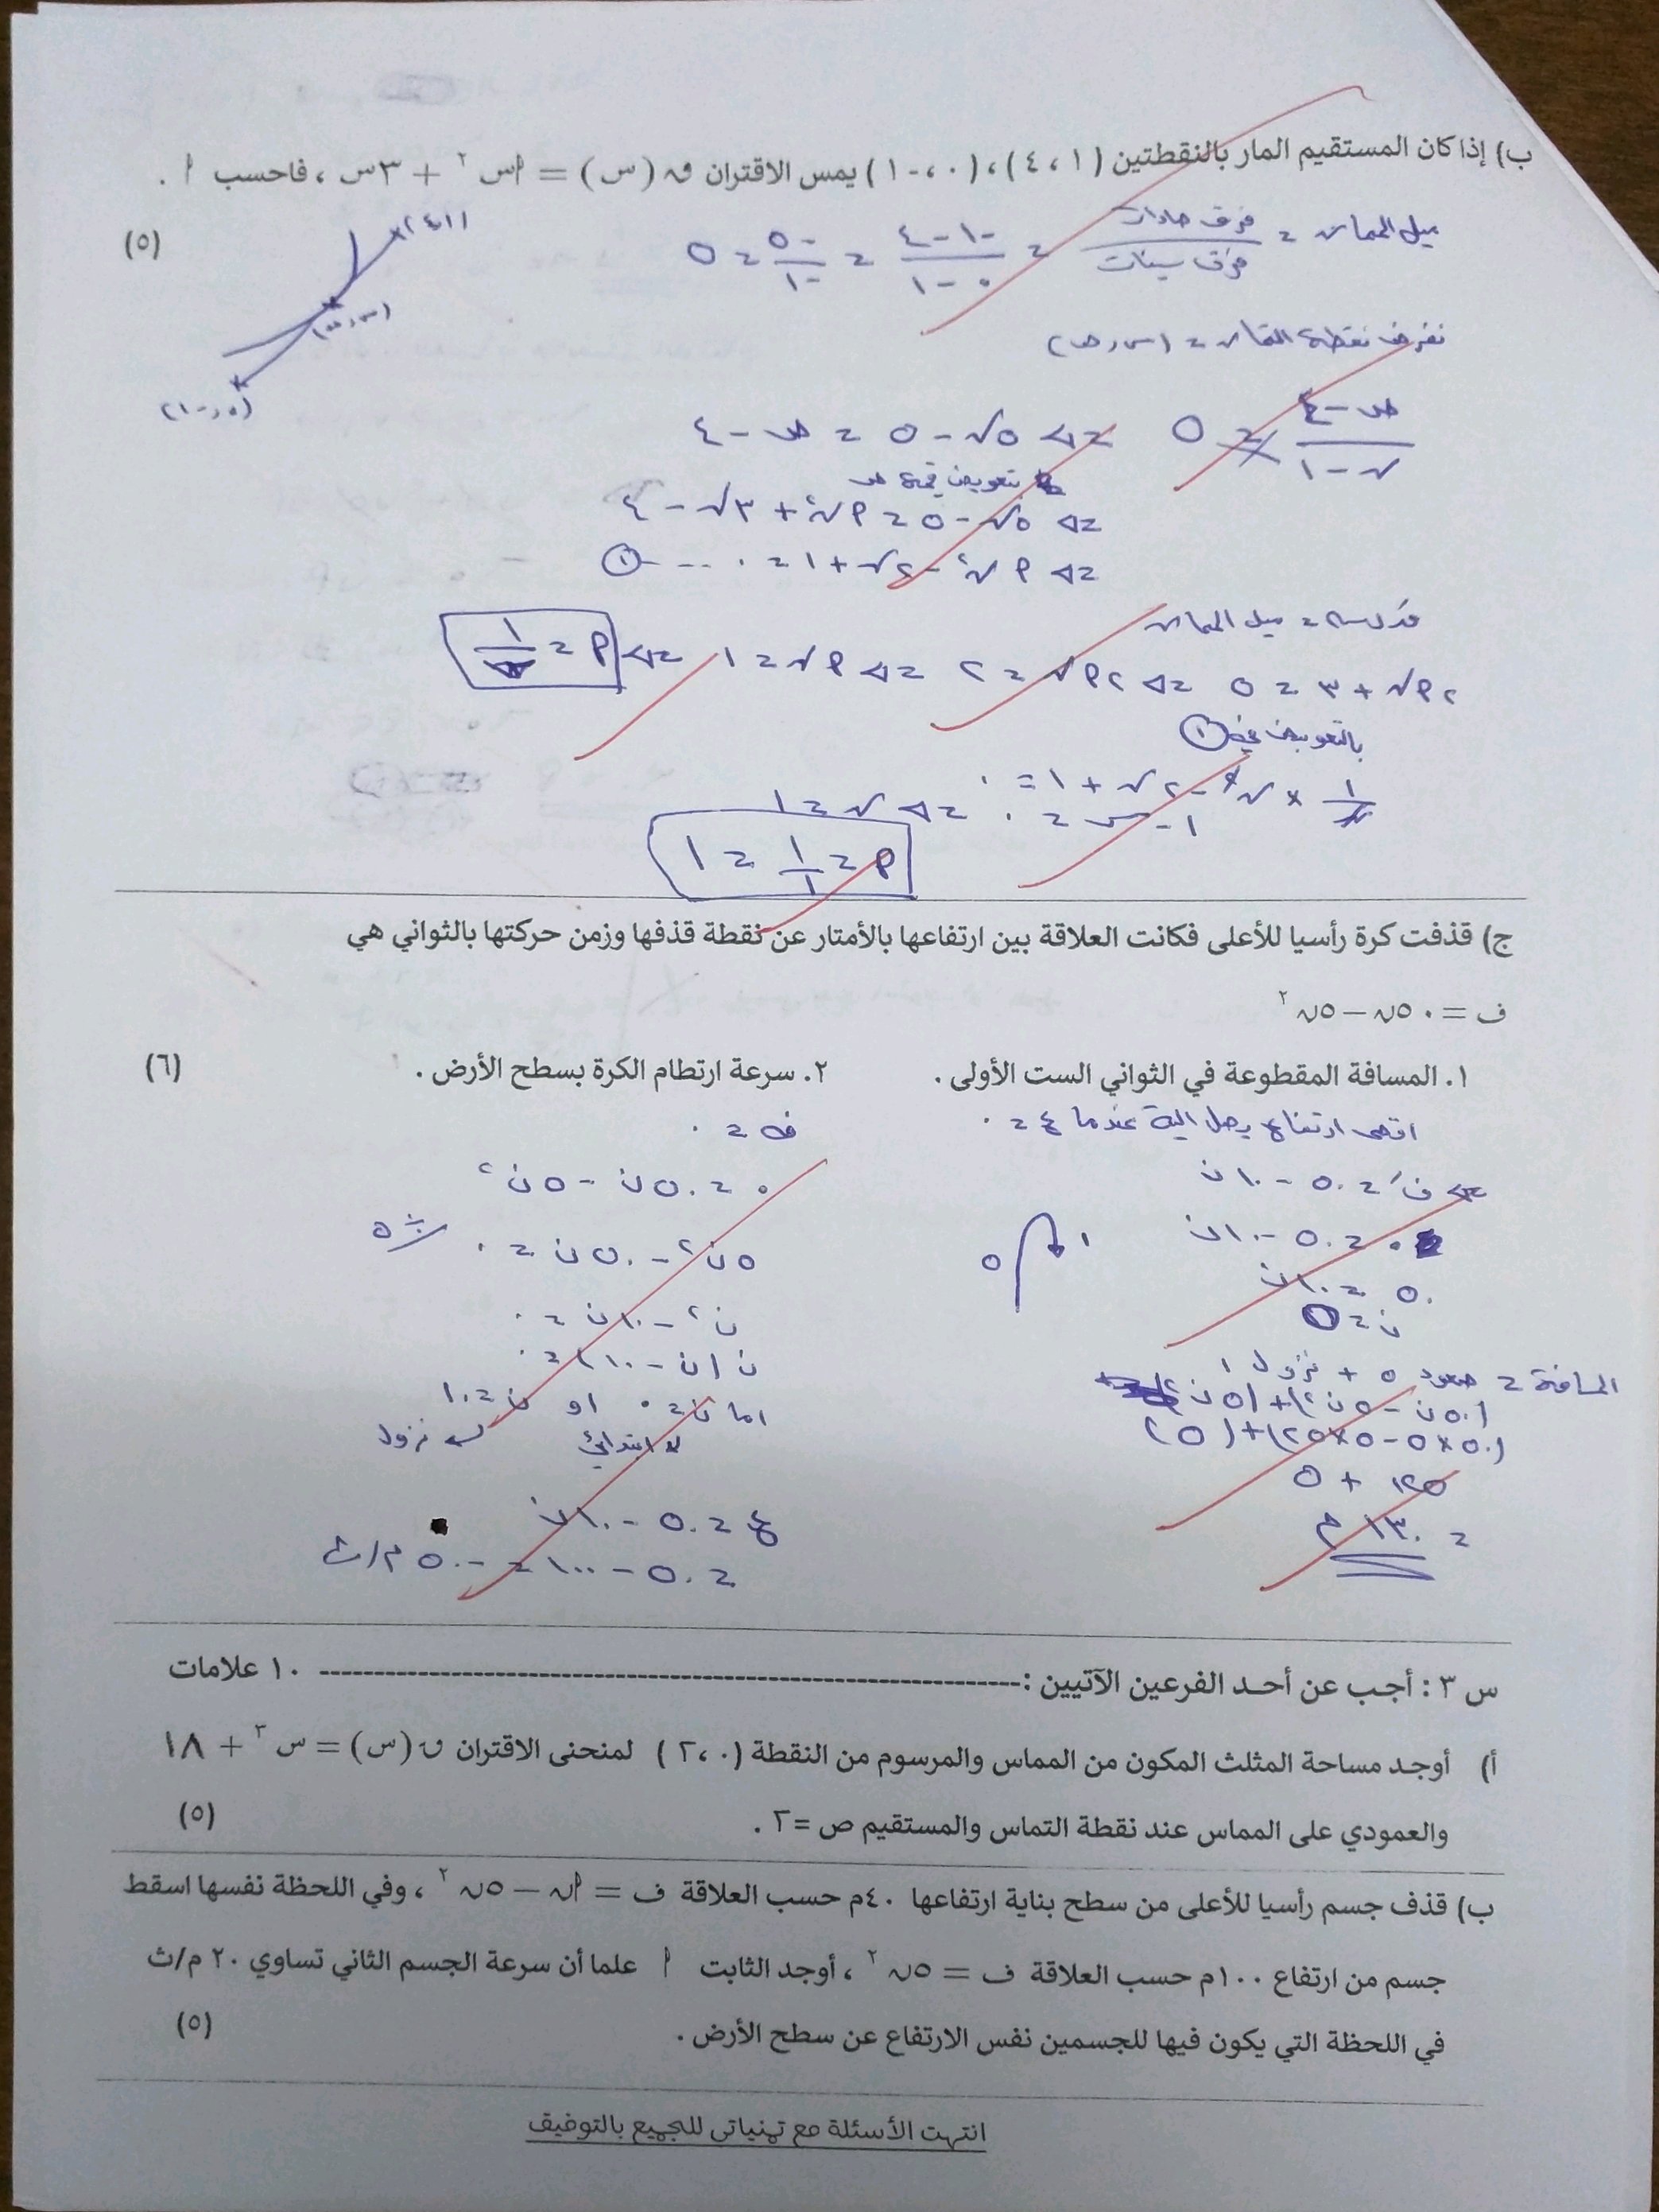 ب) إذا كان المستقيم المار بالنقطتين (١ ، ٤) ، (٠ ، -١) يمس الاقتران ق (س) = أس٢ + ٣س ، فاحسب أ .
(٥)
ميل المماس = فرق صادات / فرق سينات = -١-٤ / ٠-١ = -٥ / -١ = ٥
(٤،١)
(س،ص)
(٠،-١)
نفرض نقطة التماس = (س،ص)
ص-٤ / س-١ = ٥ <= ٥س - ٥ = ص - ٤
بتعويض قيمة ص
<= ٥س - ٥ = أس٢ + ٣س - ٤
<= أس٢ - ٢س + ١ = ٠ ... ①
قَ(س) = ميل المماس
٢أس + ٣ = ٥ <= ٢أس = ٢ <= أس = ١ <= أ = ١/س
بالتعويض في ①
١/س × س٢ - ٢س + ١ = ٠
١ - س = ٠ <= س = ١
أ = ١/١ = ١
ج) قذفت كرة رأسيا للأعلى فكانت العلاقة بين ارتفاعها بالأمتار عن نقطة قذفها وزمن حركتها بالثواني هي
ف = ٥٠ن - ٥ن٢
١. المسافة المقطوعة في الثواني الست الأولى .
٢. سرعة ارتطام الكرة بسطح الأرض .
(٦)
اقصى ارتفاع يصل اليه عندما ع = ٠
<= فَ = ٥٠ - ١٠ن
٠ = ٥٠ - ١٠ن
٥٠ = ١٠ن
ن = ٥
٥ ١
المسافة = صعود ٥ + نزول ١
(٥٠ن - ٥ن٢) + (٥ن٢)
(٥٠×٥ - ٥×٢٥) + (٥)
١٢٥ + ٥
= ١٣٠ م
ف = ٠
٠ = ٥٠ن - ٥ن٢
٥ن٢ - ٥٠ن = ٠ ÷٥
ن٢ - ١٠ن = ٠
ن (ن - ١٠) = ٠
اما ن = ٠ او ن = ١٠
ابتدائي نزول
ع = ٥٠ - ١٠ن
= ٥٠ - ١٠٠ = -٥٠ م/ث
س ٣ : أجب عن أحد الفرعين الآتيين : ---------- ١٠ علامات
أ) أوجد مساحة المثلث المكون من المماس والمرسوم من النقطة (٠ ، ٢) لمنحنى الاقتران ق (س) = س٣ + ١٨
والعمودي على المماس عند نقطة التماس والمستقيم ص = ٢ .
(٥)
ب) قذف جسم رأسيا للأعلى من سطح بناية ارتفاعها ٤٠م حسب العلاقة ف = أن - ٥ن٢ ، وفي اللحظة نفسها اسقط
جسم من ارتفاع ١٠٠م حسب العلاقة ف = ٥ن٢ ، أوجد الثابت أ علما أن سرعة الجسم الثاني تساوي ٢٠ م/ث
في اللحظة التي يكون فيها للجسمين نفس الارتفاع عن سطح الأرض .
(٥)
انتهت الأسئلة مع تمنياتي للجميع بالتوفيق